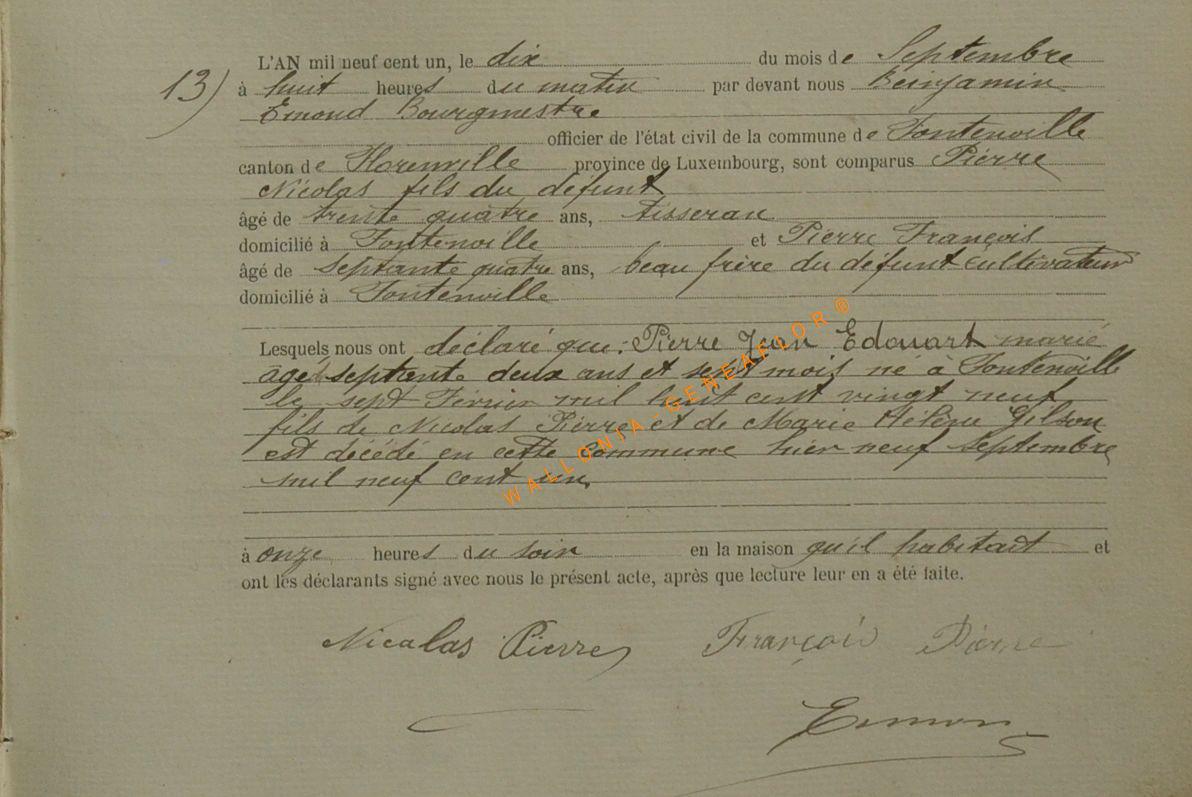 L'AN mil neuf cent un, le dix du mois de Septembre
13) à huit heures du matin par devant nous Benjamin
Emond Bourgmestre
officier de l'état civil de la commune de Fontenoille
canton de Florenville province de Luxembourg, sont comparus Pierre
Nicolas fils du défunt
âgé de trente quatre ans, tisseran
domicilié à Fontenoille et Pierre François
âgé de septante quatre ans, beau frère du défunt cultivateur
domicilié à Fontenville
Lesquels nous ont déclaré que: Pierre Jean Edouart marié
âgé septante deux ans et sept mois né à Fontenoille
le sept Février mil huit cent vingt neuf
fils de Nicolas Pierre et de Marie Hélène Gilson
est décédé en cette commune hier neuf Septembre
mil neuf cent un.
à onze heures du soir en la maison qu'il habitait et
ont les déclarants signé avec nous le présent acte, après que lecture leur en a été faite.
Nicalas Pierre François Pierre
Emon
WALLONIA-GENEAFLOR ®